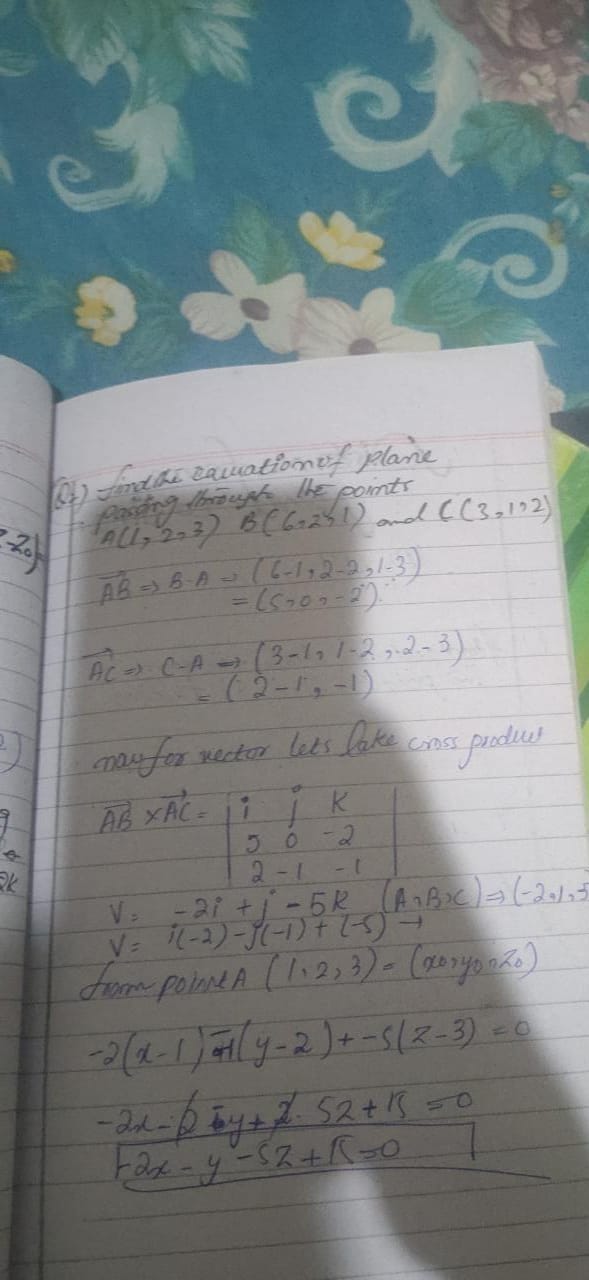 Q1) find the equation of plane
passing through the points
A(1, 2, 3) B(6, 2, 1) and C(3, 1, 2)
AB => B-A => (6-1, 2-2, 1-3)
= (5, 0, -2)
AC => C-A => (3-1, 1-2, 2-3)
= (2 -1, -1)
now for vector lets take cross product
AB x AC = | i j K |
5 0 -2
2 -1 -1
V = -2i + j - 5k (A, B, C) => (-2, 1, 5
V = i(-2) - j(-1) + (-5)
from point A (1, 2, 3) = (x0, y0, z0)
-2(x-1) (y-2) + -5(z-3) = 0
-2x - y + 2 - 5z + 15 = 0
-2x - y - 5z + 15 = 0